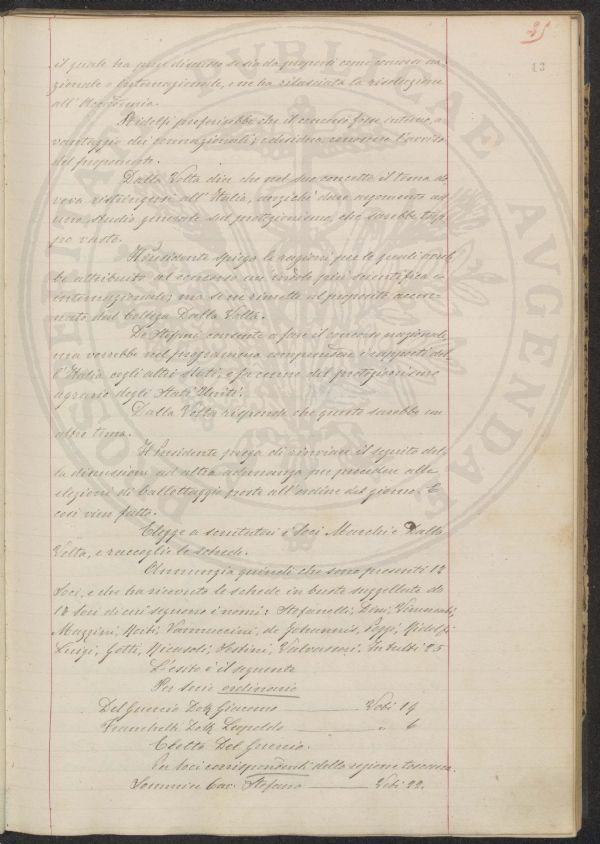 35
13
il quale ha pure discusso se sia da proporsi come concorso na-
zionale o internazionale, e ne ha rilasciata la risoluzione
all'Accademia.
Ridolfi preferirebbe che il concorso fosse interno, a
vantaggio dei connazionali; e desidera conoscere l'avviso
del proponente.
Dalla Volta dice che nel suo concetto il tema do-
veva restringersi all'Italia, anzichè dare argomento ad
uno studio generale sul protezionismo, che sarebbe trop-
po vasto.
Il Presidente spiega le ragioni per le quali avreb-
be attribuito al concorso un indole più scientifica e
internazionale; ma se ne rimette al proposito accen-
nato dal Collega Dalla Volta.
De Stefani consente a fare il concorso nazionale,
ma vorrebbe nel programma comprendere i rapporti del-
l'Italia cogli altri Stati, e far cenno del protezionismo
agrario degli Stati Uniti.
Dalla Volta risponde che questo sarebbe un
altro tema.
Il Presidente prega di rinviare il seguito del-
la discussione ad altra adunanza per procedere alle
elezioni di ballottaggio poste all'ordine del giorno. E
così vien fatto.
Elegge a scrutatori i Soci Marchi e Dalla
Volta, e raccoglie le schede.
Annunzia quindi che sono presenti 12
Soci, e che ha ricevuto le schede in busta suggellata da
13 Soci di cui seguono i nomi: Stefanelli, Dini, Vimercati,
Mazzini, Vannuccini, de Johannis, Poggi, Ridolfi
Luigi, Gotti, Ricasoli, Valvassori. In tutti 25
L'esito è il seguente
Per socio ordinario
Del Guercio Dott. Giacomo ——— Voti 19
Franchetti Dott. Leopoldo ——— " 6
Eletto Del Guercio.
Per Soci corrispondenti della regione toscana.
Sommier Cav. Stefano ——— Voti 22.